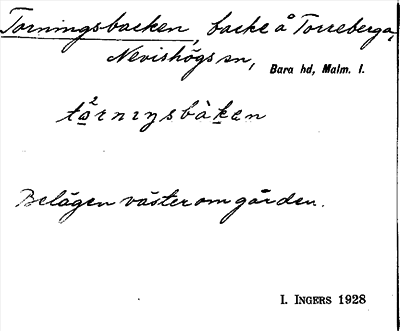 Torningsbacken, backe å Torreberga,
Nevishögs sn, Bara hd, Malm. l.
tɑ²rnɪŋsbàkɛn
Belägen väster om gården.
I. INGERS 1928